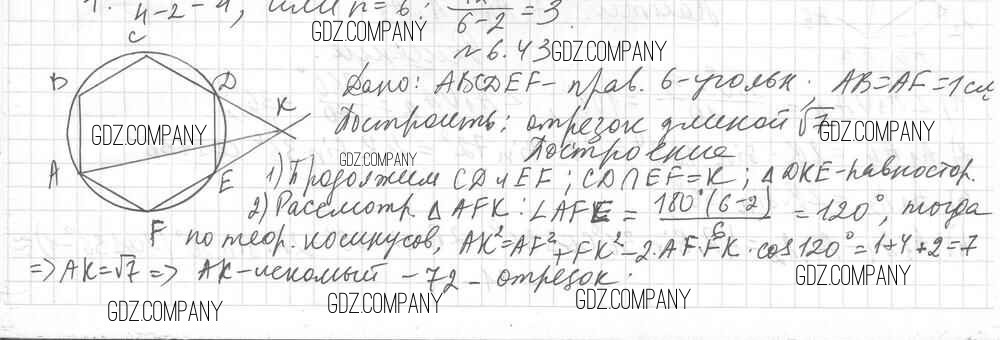 4-2-4, или n=6: 6-2 = 3
GDZ.COMPANY
№ 6.43 GDZ.COMPANY
C
B D K
Дано: ABCDEF – прав. 6-угольн. AB=AF=1 см
GDZ.COMPANY
Построить: отрезок длиной √7
GDZ.COMPANY
Построение
GDZ.COMPANY
A E
1) Продолжим CD и EF; CD∩EF=K; △DKE-равностор.
2) Рассмотр. △AFK: ∠AFE = 180°(6-2)/6 = 120°, тогда
F
по теор. косинусов, AK²=AF²+FK²-2·AF·FK·cos120°=1+4+2=7
=> AK=√7 => AK-искомый отрезок.
GDZ.COMPANY GDZ.COMPANY GDZ.COMPANY